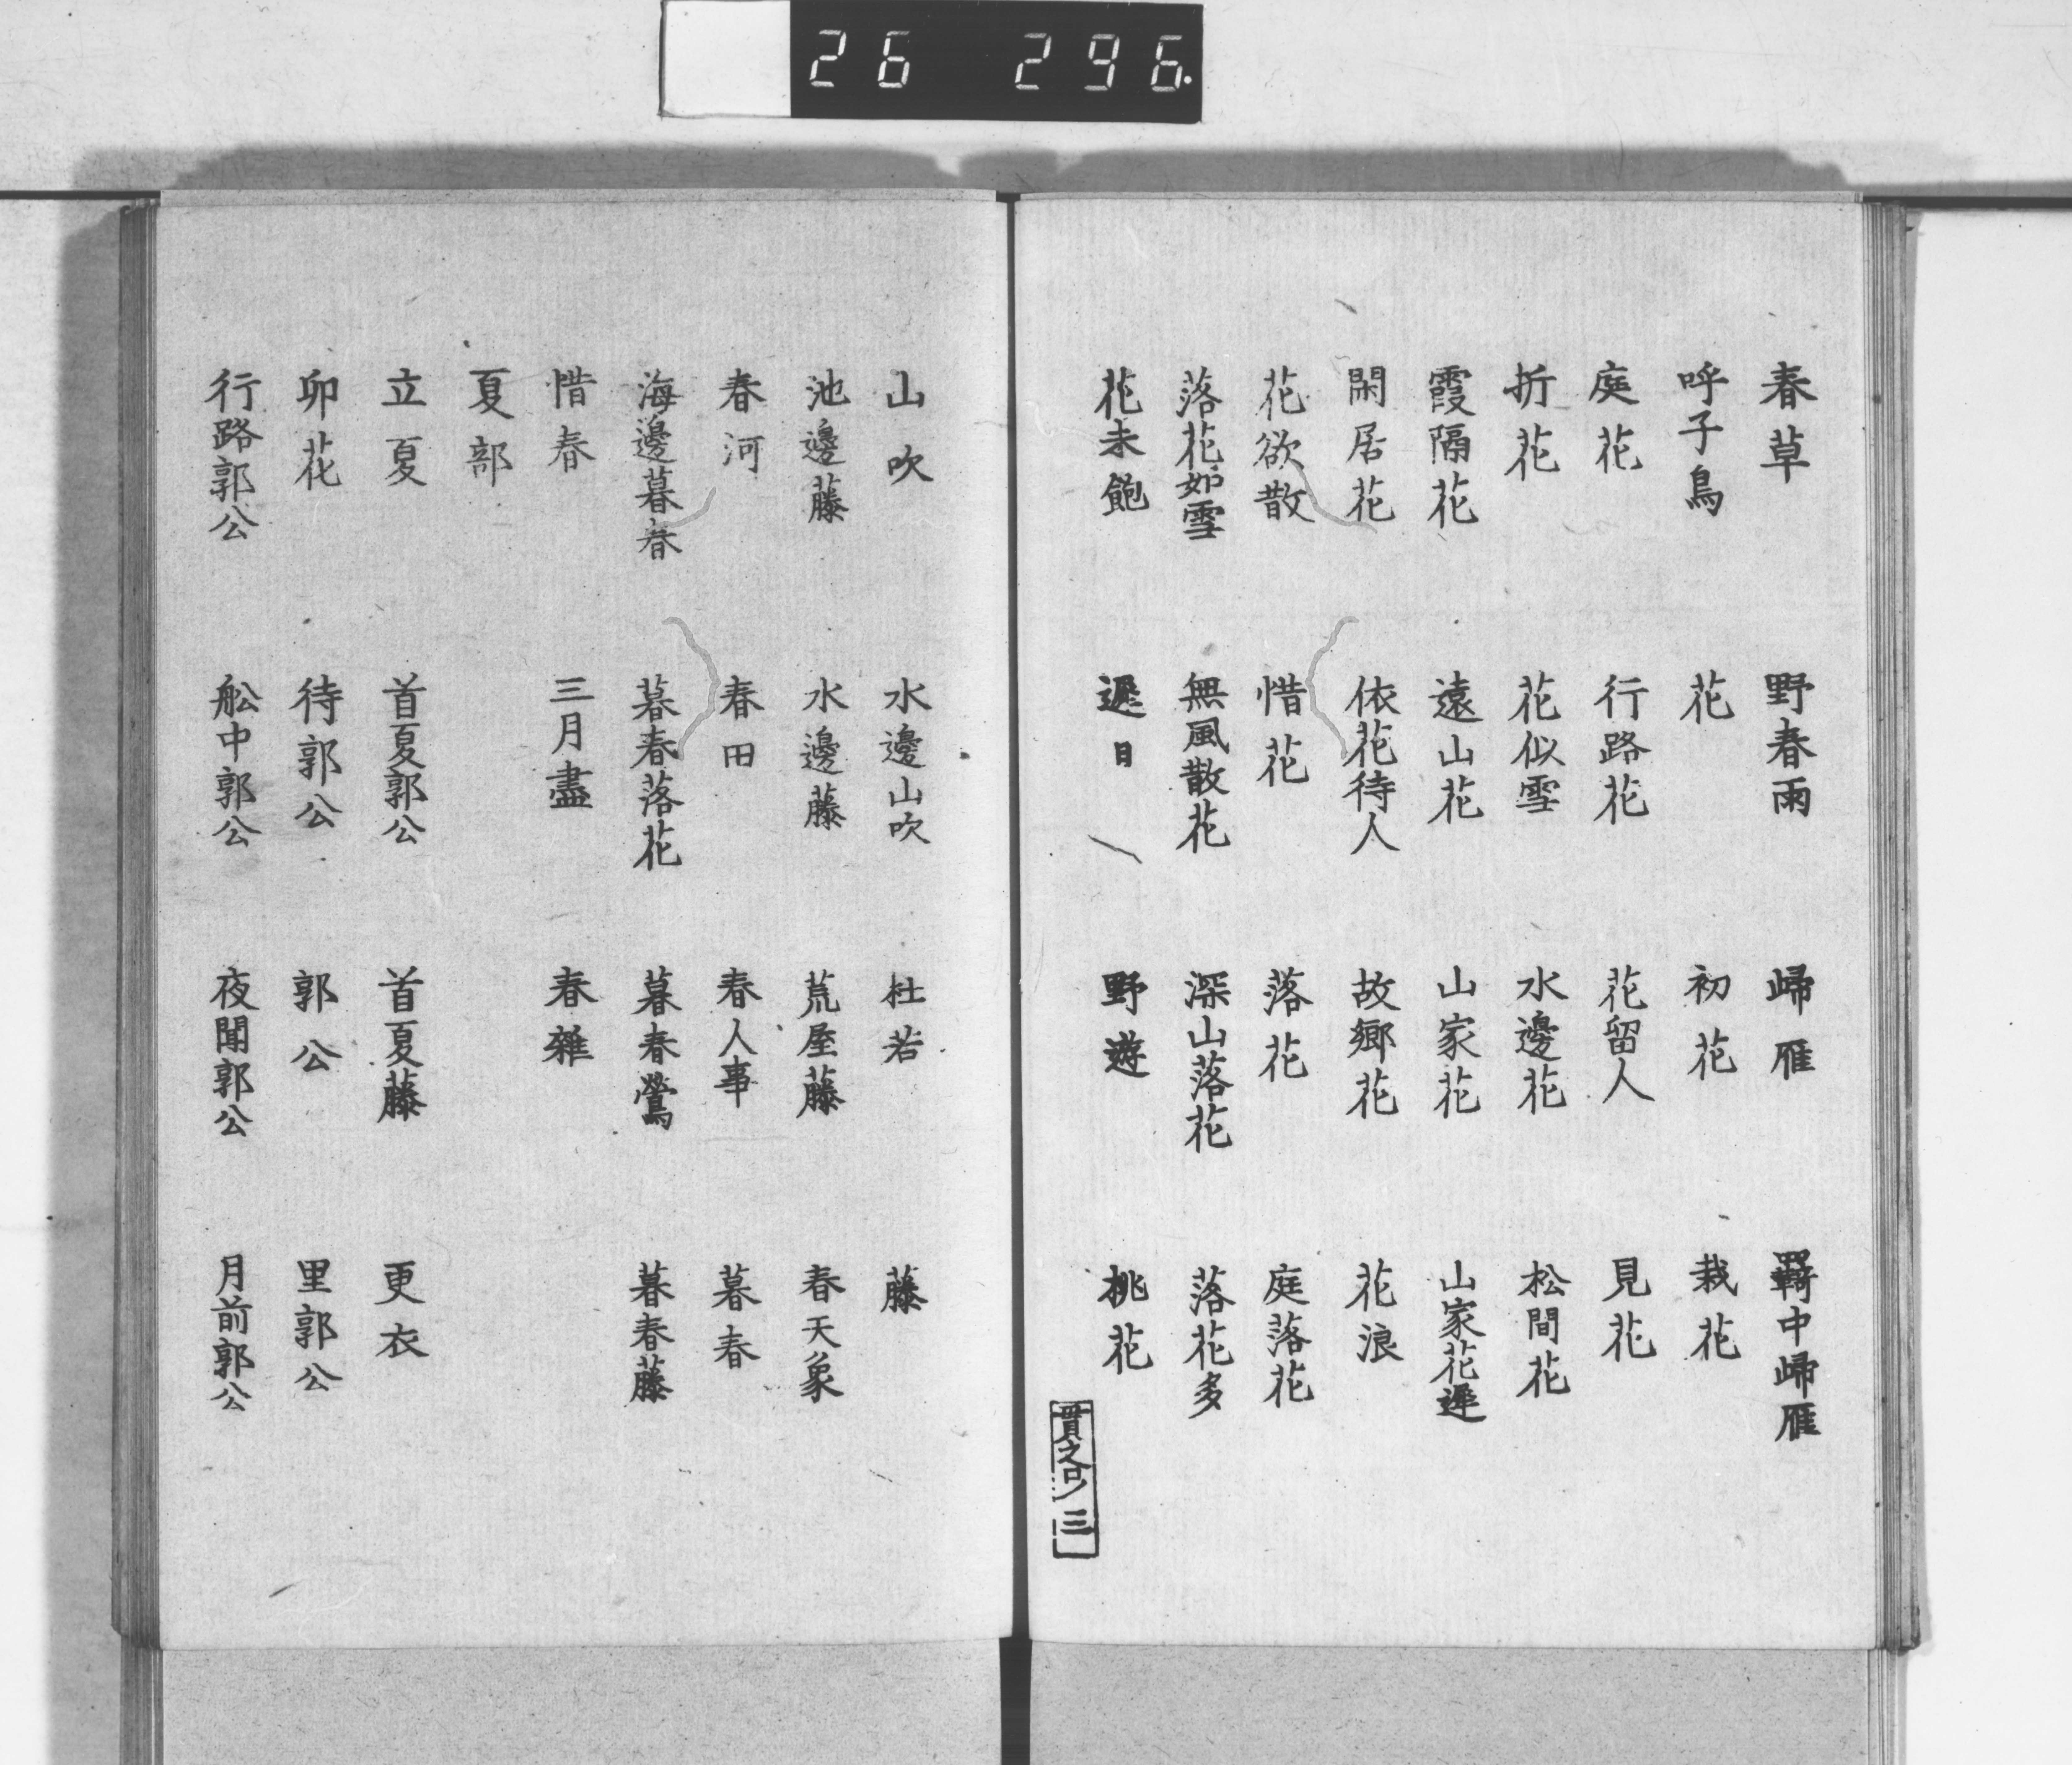 26 296.
春草 野春雨 歸雁 羇中歸雁
呼子鳥 花 初花 栽花
庭花 行路花 花留人 見花
折花 花似雪 水邊花 松間花
霞隔花 遠山花 山家花 山家花遲
閑居花 依花待人 故郷花 花浪
花欲散 惜花 落花 庭落花
落花如雪 無風散花 深山落花 落花多
花未飽 遲日 野遊 桃花
三
山吹 水邊山吹 杜若 藤
池邊藤 水邊藤 荒屋藤 春天象
春河 春田 春人事 暮春
海邊暮春 暮春落花 暮春鶯 暮春藤
惜春 三月盡 春雜
夏部
立夏 首夏郭公 首夏藤 更衣
卯花 待郭公 郭公 里郭公
行路郭公 舩中郭公 夜聞郭公 月前郭公